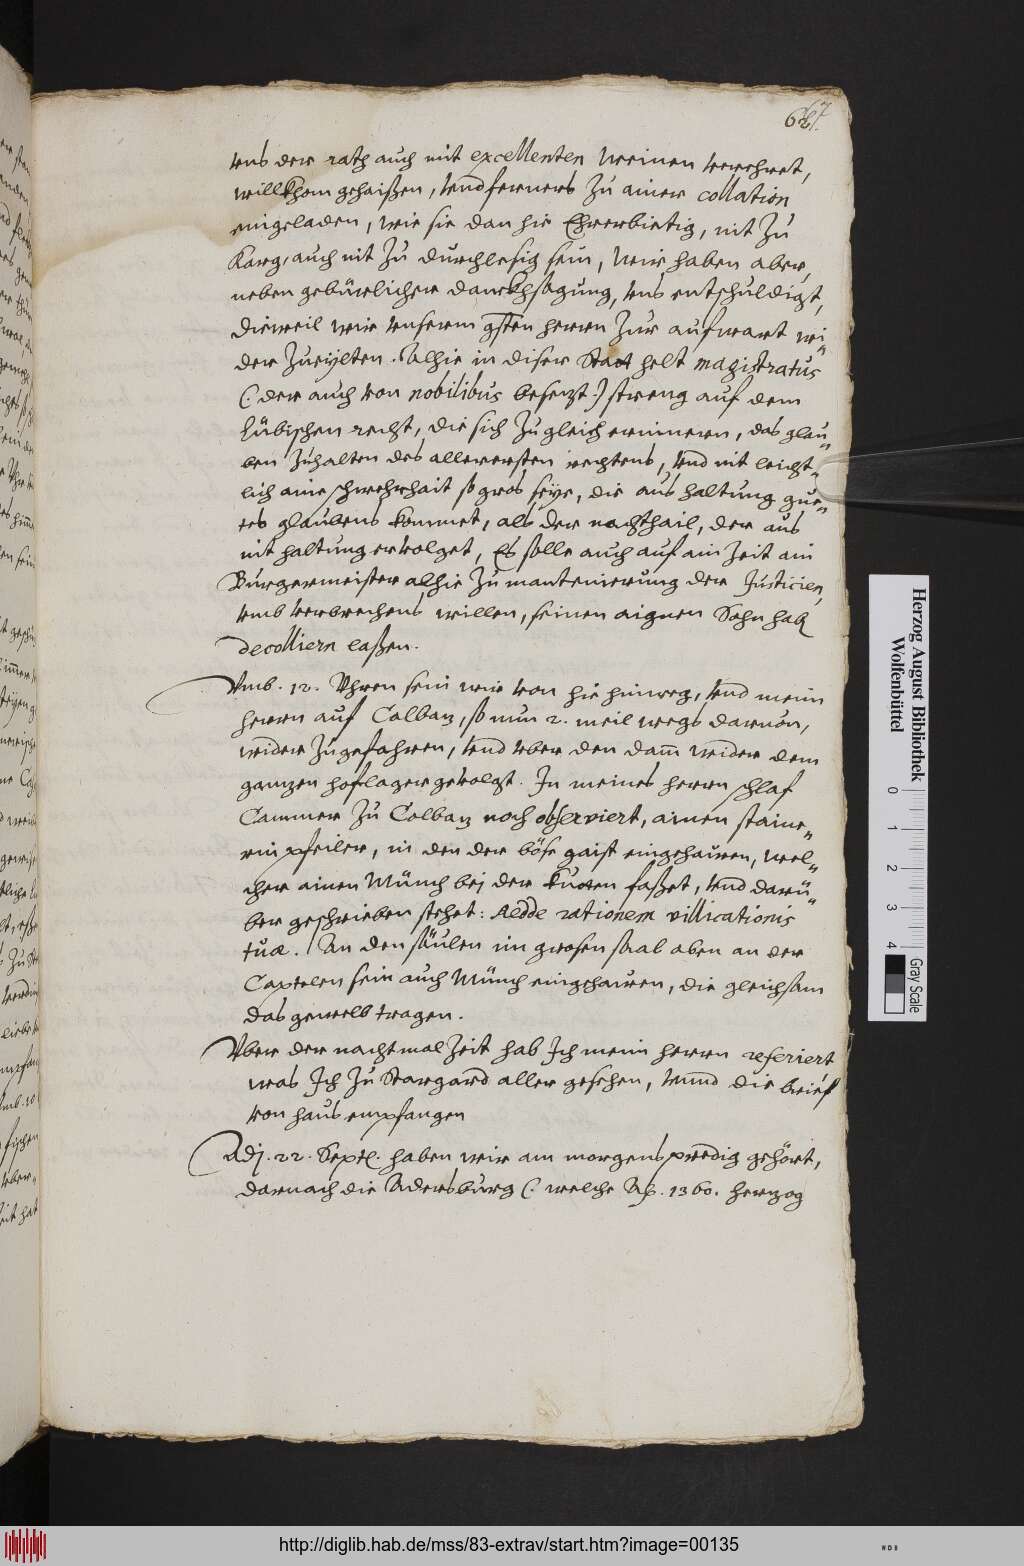 67
62.
vns der rath auch mit excellenten weinen verehret,
willkhom gehaißen, vnd ferners zu ainer collation
eingeladen, wie sie dan hie Ehrerbietig, nit zu
karg, auch nit zu durchlesig sein, wir haben aber,
neben gebürlicher danckhsagung, vns entschuldigt,
dieweil wir vnserm gsten herrn zur aufwart wi-
der zueylten. Alhie in diser Statt helt magistratus
(: der auch von nobilibus besetzt :) streng auf dem
Lübischen recht, die sich zugleich erinnern, das glau-
ben zuhalten des allerersten rechtens, vnd nit leicht-
lich aine schwehrhait so gros seye, die aus haltung gue-
tes glaubens kommet, als der nachthail, der aus
nit haltung ervolget, Es solle auch auf ain Zeit ain
Burgermeister alhie zu mantenierung der Justicien,
vmb verbrechens willen, seinen aignen Sohn hab
decolliern laßen.
Vmb. 12. Vhren sein wir von hie hinweg, vnd meim
herrn auf Colbatz, so nun 2. meil wegs daruon,
wider zugefahren, vnd vber den dam̄ wider dem
gantzen hoflager gevolgt. In meines herrn schlaf
Cammer zu Colbatz noch observiert, ainen staine-
rin pfeiler, in den der böse gaist eingehauen, wel-
cher ainen Münch bej der kutten faßet, vnd darü-
ber geschrieben stehet: Redde rationem villicationis
tuæ. An den säulen im grosen saal aben an der
Captelen sein auch Münch eingehauen, die gleichsam
das gewelb tragen.
Vber der nachtmal Zeit hab Ich meim herrn referiert
was Ich zu Stargard aller gesehen, vnnd die brief
von haus empfangen
Adj. 22. Septe. haben wir am morgens predig gehört,
darnach die Adersburg (: welche Aō. 1360. hertzog
Herzog August Bibliothek
Wolfenbüttel
0 1 2 3 4
Gray Scale
http://diglib.hab.de/mss/83-extrav/start.htm?image=00135